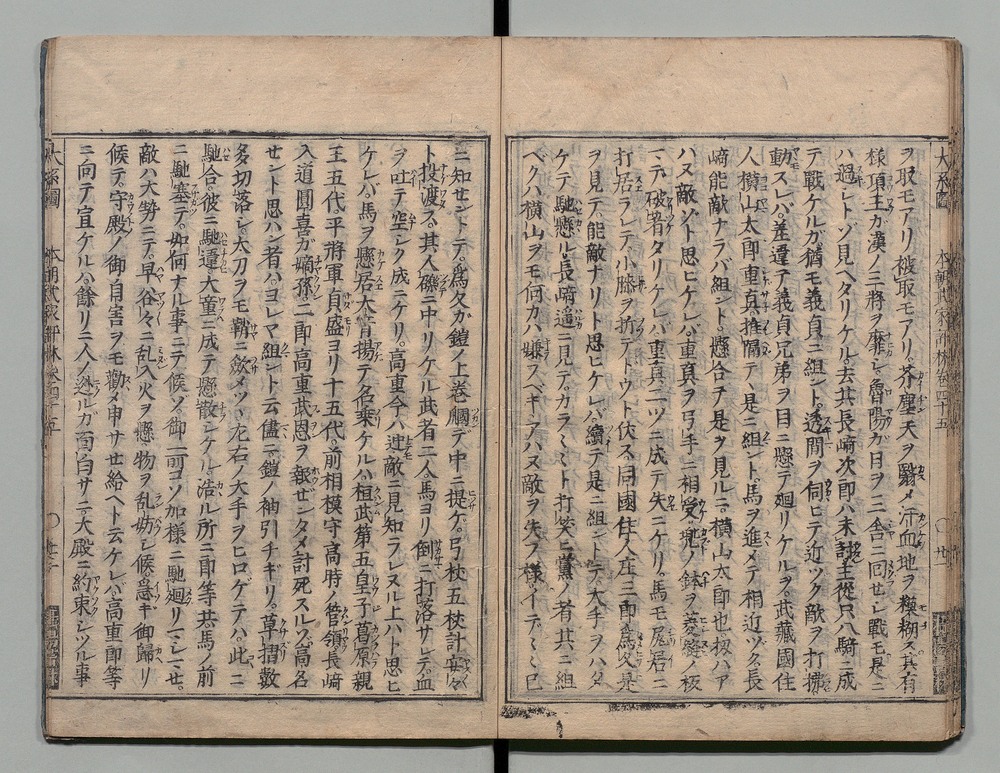 ヲ取モアリ被取モアリ。芥塵天ヲ翳メ汗血地ヲ糢糊ス其有
様項王カ漢ノ三將ヲ靡シ魯陽カ日ヲ三舎ニ回セシ戰モ是ニ
ハ過レトゾ見ヘタリケル去共長﨑次郎ハ未討主從只八騎ニ成
テ戰ケルガ猶モ義貞ニ組ント透間ヲ伺ヒテ近ツク敵ヲ打拂
動スレバ差違テ義貞兄弟ヲ目ニ懸テ廻リケルヲ。武藏國住
人横山太郎重真推隔テ、是ニ組ント。馬ヲ進メテ相近ヅク。長
﨑能敵ナラバ組ント。懸合テ是ヲ見ルニ。横山太郎也扨ハア
ハヌ敵ゾト思ヒケレバ。重真ヲ弓手ニ相受。
破著タリケレバ重真二ツニ成テ失ニケリ。馬モ尻居ニ
打居ラレテ。小膝ヲ折テドウト伏ス。同國住人庄三郎爲久是
ヲ見テ。能敵ナリト思ヒケレバ續テ是ニ組ントテ。大手ヲハダ
ケテ馳懸ル長﨑遥ニ見テ。カラ〳〵ト打笑。黨ノ者共ニ組
ベクハ横山ヲモ何カハ嫌フベキ。アハヌ敵ヲ失フ様。イデ〳〵己
ニ知セントテ。爲久が鎧ノ上巻𦜝デ中ニ提ゲ。弓杖五杖計安々
ト投渡ス。其人礫ニ中リケル武者二人馬ヨリ倒ニ打落サレテ。血
ヲ吐テ空シク成ニケリ。高重今ハ迚敵ニ見知ラレヌル上ハト思ヒ
ケレバ馬ヲ懸居大音揚テ名乗ケルハ。桓武第五皇子葛原親
王五代。平將軍貞盛ヨリ十五代。前相模守高時ノ管領長﨑
入道圓喜ガ嫡孫。二郎高重武恩ヲ報ゼンタメ討死スルゾ。高名
セント思ハン者ハ。ヨレヤ組ント云儘ニ。鎧ノ袖引チギリ。草摺數
多切落シ。大刀ヲモ鞘ニ歛メツヽ。左右ノ大手ヲヒロゲテハ。此ニ
馳合。彼ニ馳違。大童ニ成テ懸散シケル。浩ル所ニ郎等共馬ノ前
ニ馳塞テ。如何ナル事ニテ候ゾ。御一所コソ加様ニ馳廻リマシマセ。
敵ハ大勢ニテ。早谷々ニ乱入火ヲ懸。物ヲ乱妨シ候。急ギ御歸リ
候テ。守殿ノ御自害ヲモ勸メ申サセ給ヘト云ケレバ。高重郎等
ニ向テ宣ケルハ。餘リニ人ノ逃ルガ面白サニ。大殿ニ約束シツル事